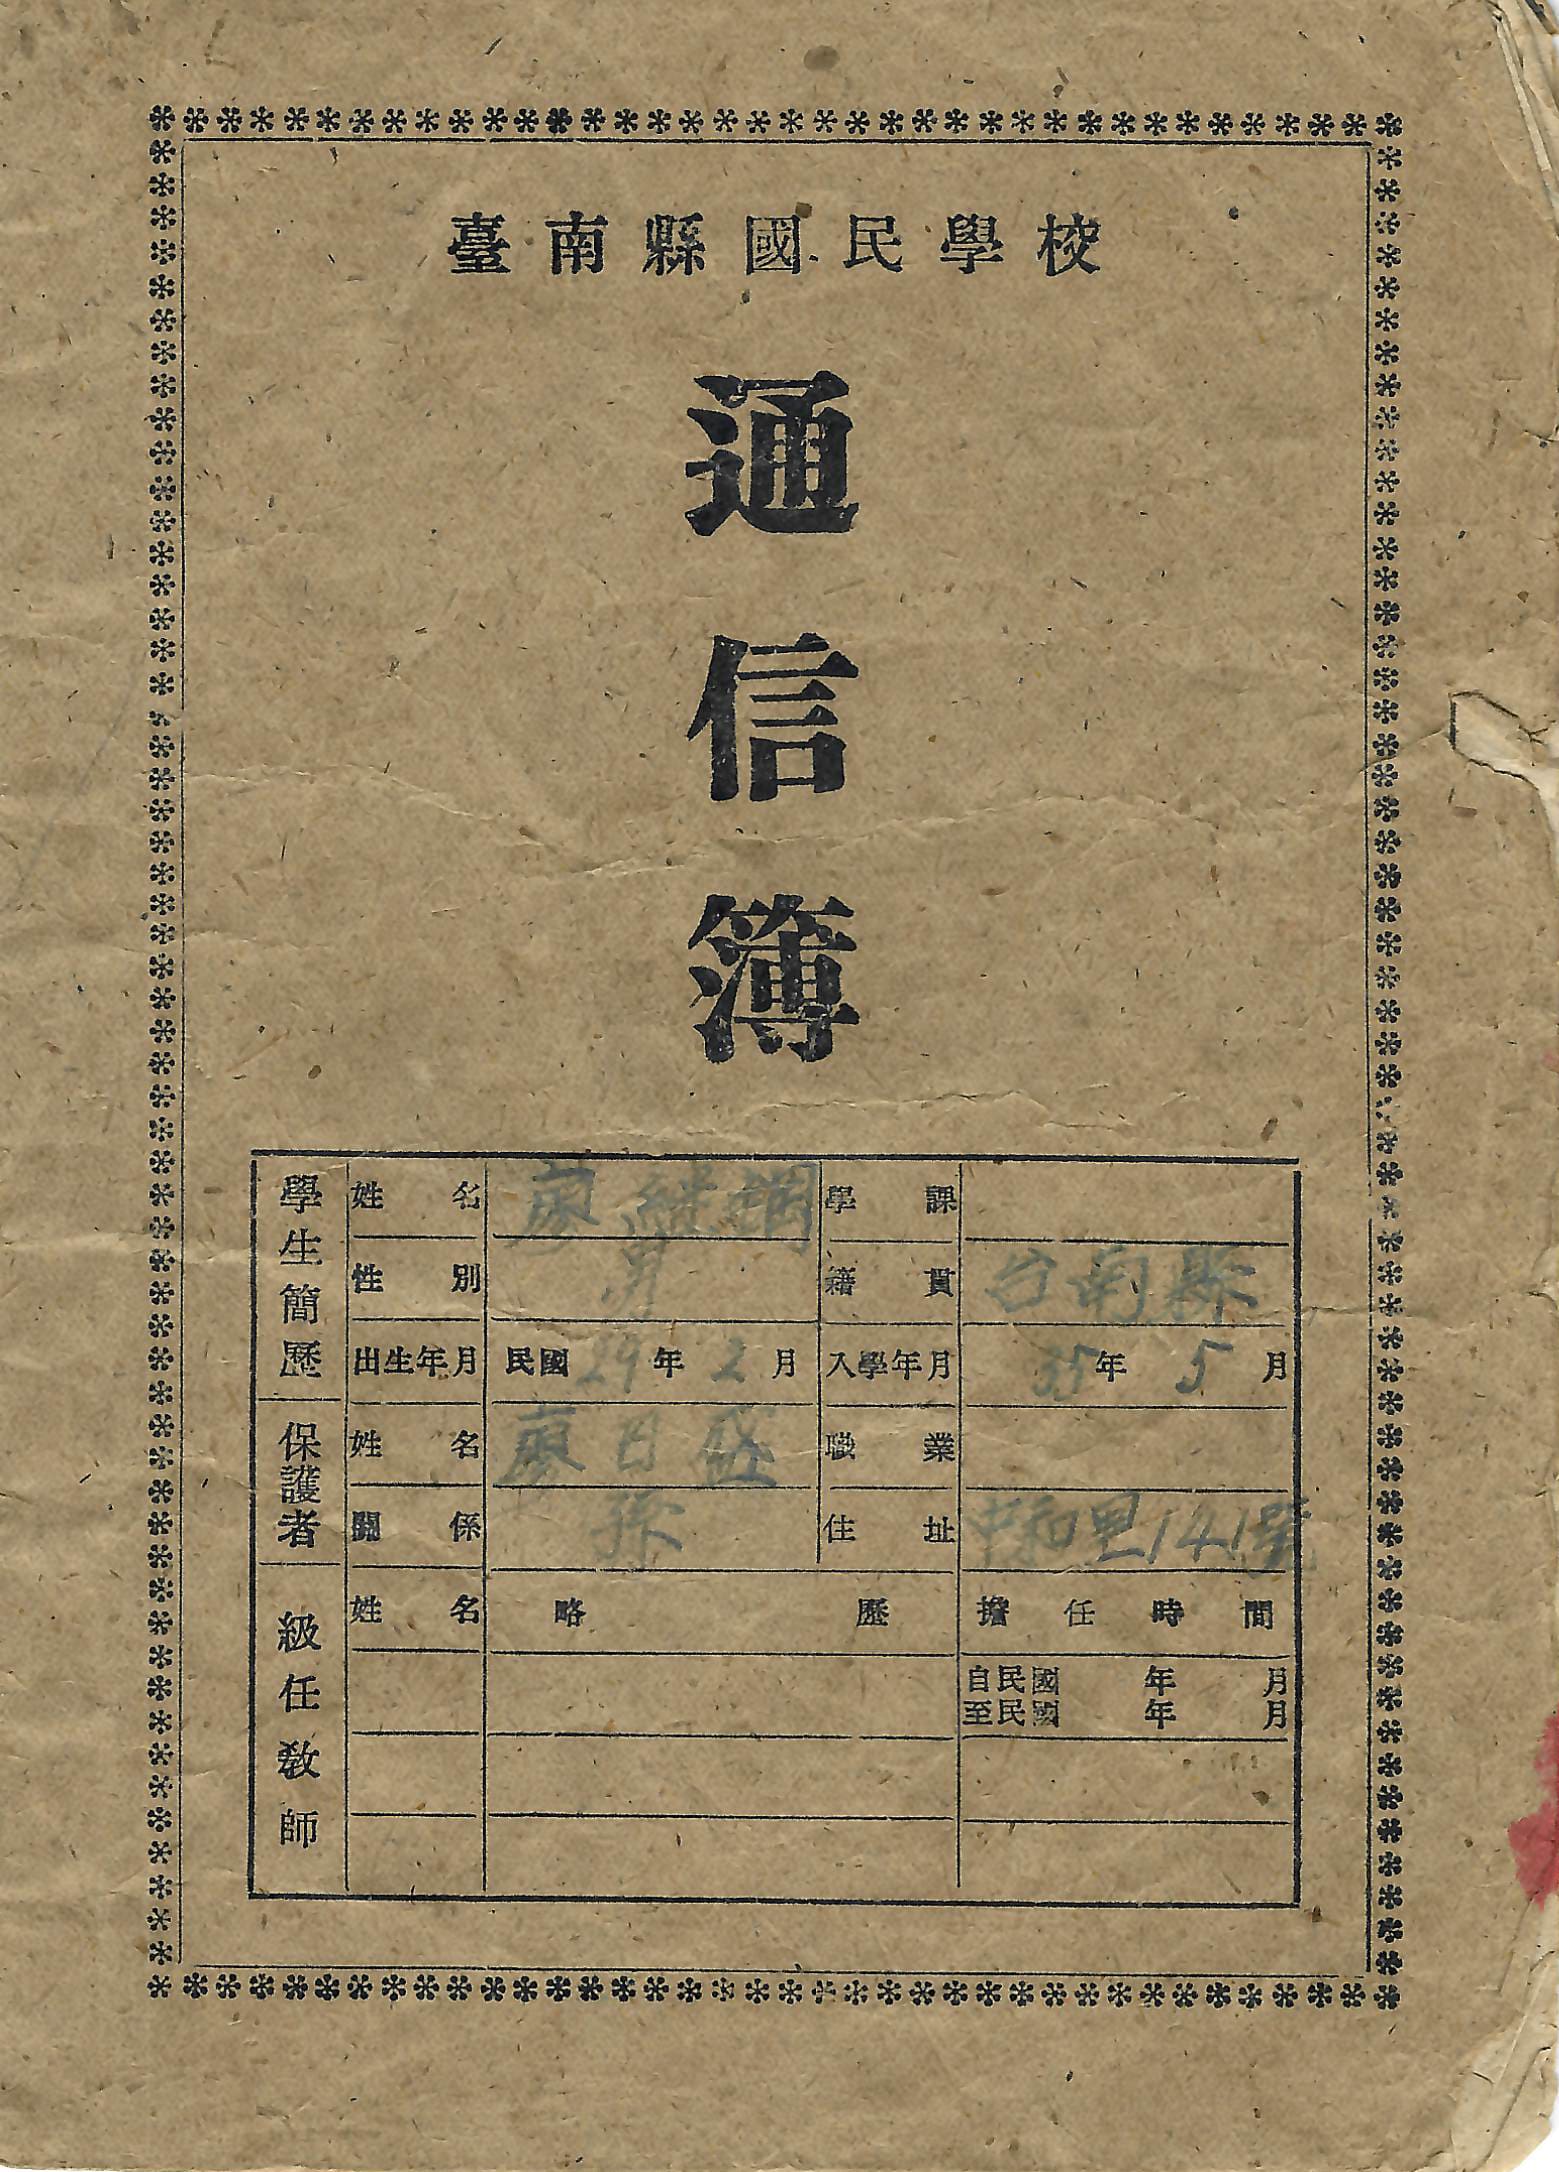 臺南縣國民學校
通信簿
學生簡歷
姓名 廖繼鋼 學課
性別 男 籍貫 台南縣
出生年月 民國29年2月 入學年月 35年5月
保護者
姓名 廖日盛 職業
關係 孫 住址 中和里141號
級任教師
姓名 略歷 擔任時間
自民國 年 月
至民國 年 月